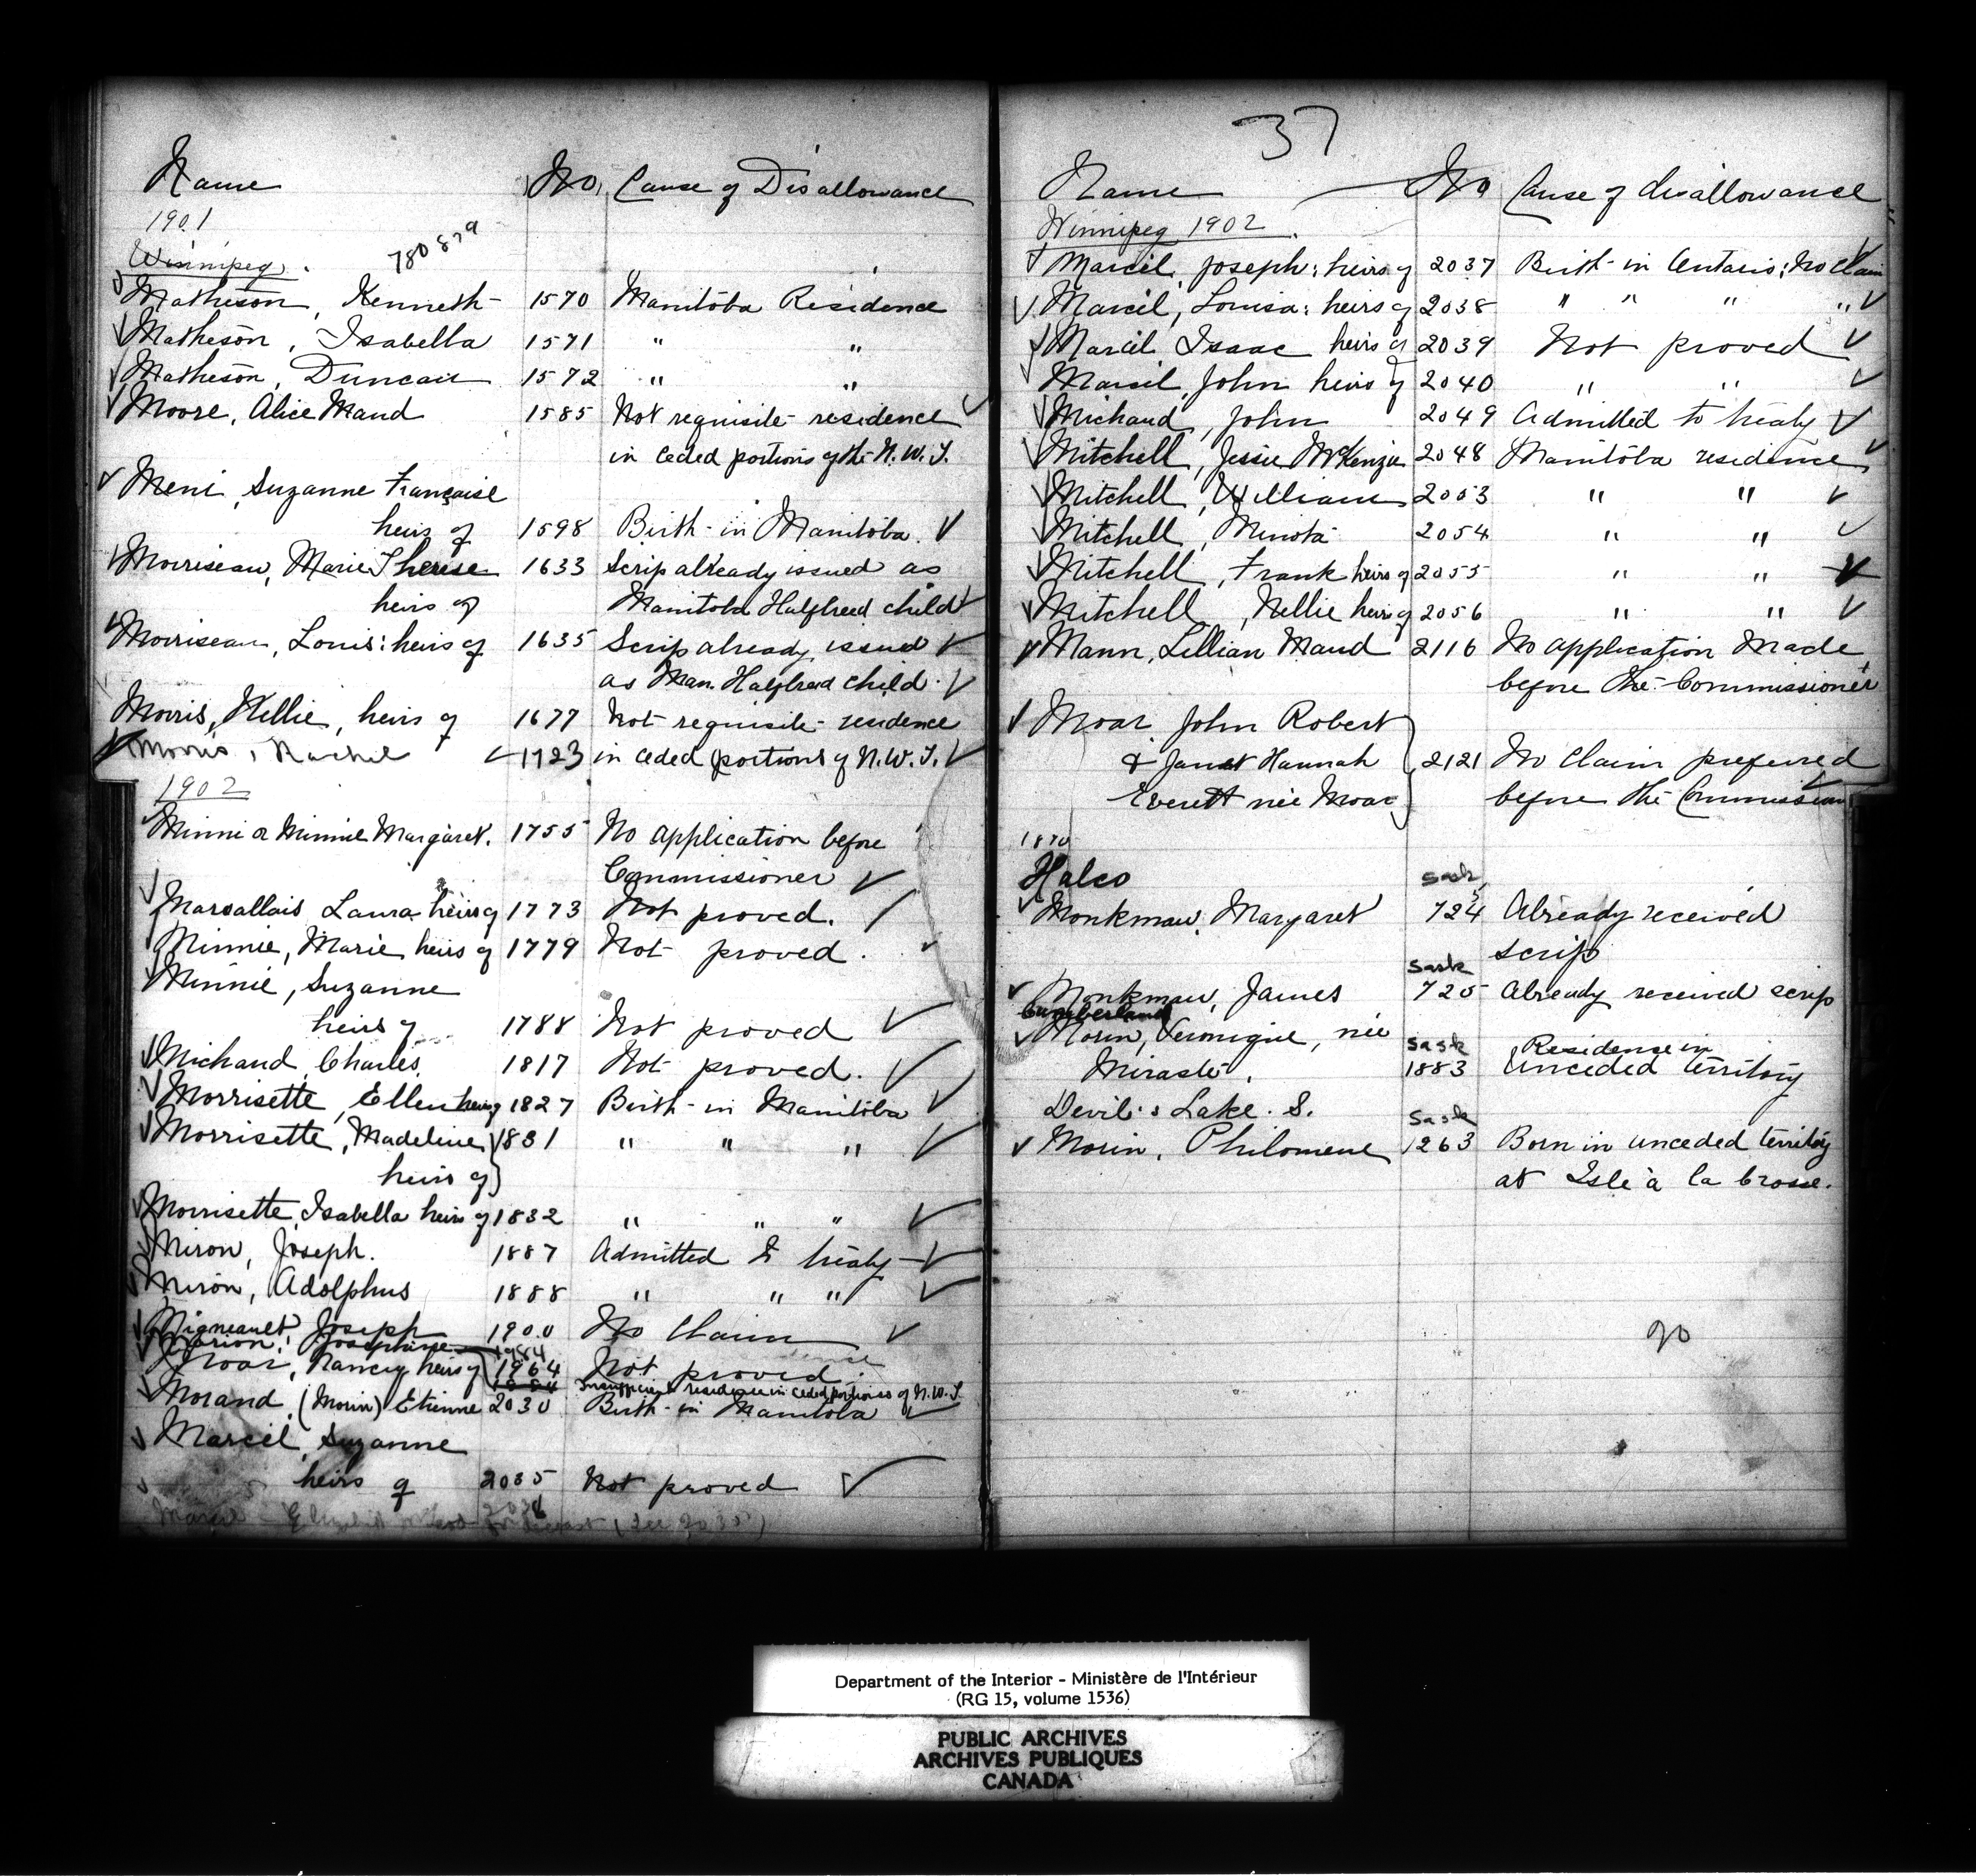 Name No. Cause of Disallowance
1901
Winnipeg. 780879
Matheson, Kenneth 1570 Manitoba Residence
Matheson, Isabella 1571 " "
Matheson, Duncan 1572 " "
Moore, Alice Maud 1585 Not requisite residence
in ceded portions of the N.W.T.
Meni, Suzanne Française
heirs of 1598 Birth in Manitoba.
Morriseau, Marie Therese 1633 Scrip already issued as
heirs of Manitoba Halfbreed child
Morriseau, Louis: heirs of 1635 Scrip already issued
as Man. Halfbreed child.
Morris, Nellie, heirs of 1677 Not requisite residence
Morris, Rachel 1723 in ceded portions of N.W.T.
1902
Minni or Minnie Margaret. 1755 No application before
Commissioner
Marsallais Laura heirs of 1773 Not proved.
Minnie, Marie heirs of 1779 Not proved.
Minnie, Suzanne
heirs of 1788 Not proved
Michaud, Charles. 1817 Not proved.
Morrisette, Ellen heirs of 1827 Birth in Manitoba
Morrisette, Madeline 1831 " " "
heirs of
Morrisette, Isabella heirs of 1832 " " "
Miron, Joseph. 1887 Admitted to treaty
Miron, Adolphus 1888 " " "
Migneault, Joseph 1900 No Claim
Marion, Josephine 1984
Moar, Nancy heirs of 1964 Not proved.
1984 Insufficient residence in ceded portions of N.W.T.
Morand (Morin) Etienne 2030 Birth in Manitoba
Marcil, Suzanne
heirs of 2035 Not proved
Marcil (See 2035)
37
Name No Cause of disallowance
Winnipeg 1902.
Marcil, Joseph: heirs of 2037 Birth in Ontario: No claim
Marcil, Louisa: heirs of 2038 " " " "
Marcil, Isaac heirs of 2039 Not proved
Marcil, John heirs of 2040 " "
Michaud, John 2049 Admitted to treaty
Mitchell, Jessie McKenzie 2048 Manitoba residence
Mitchell, William 2053 " "
Mitchell, Minota 2054 " "
Mitchell, Frank heirs of 2055 " "
Mitchell, Nellie heirs of 2056 " "
Mann, Lillian Maud 2116 No application Made
before the Commissioner
Moar, John Robert
& Janet Hannah 2121 No Claim preferred
Everett née Moar before the Commission
1870
Halco Sask
Monkman, Margaret 724 Already received
scrip
Sask
Monkman, James 725 Already received scrip
Cumberland
Morin, Veronique, née Sask Residence in
Miraste, 1883 Unceded territory
Devil's Lake. S. Sask
Morin, Philomene 1263 Born in unceded territory
at Isle à la Crosse.
90
Department of the Interior - Ministère de l'Intérieur
(RG 15, volume 1536)
PUBLIC ARCHIVES
ARCHIVES PUBLIQUES
CANADA